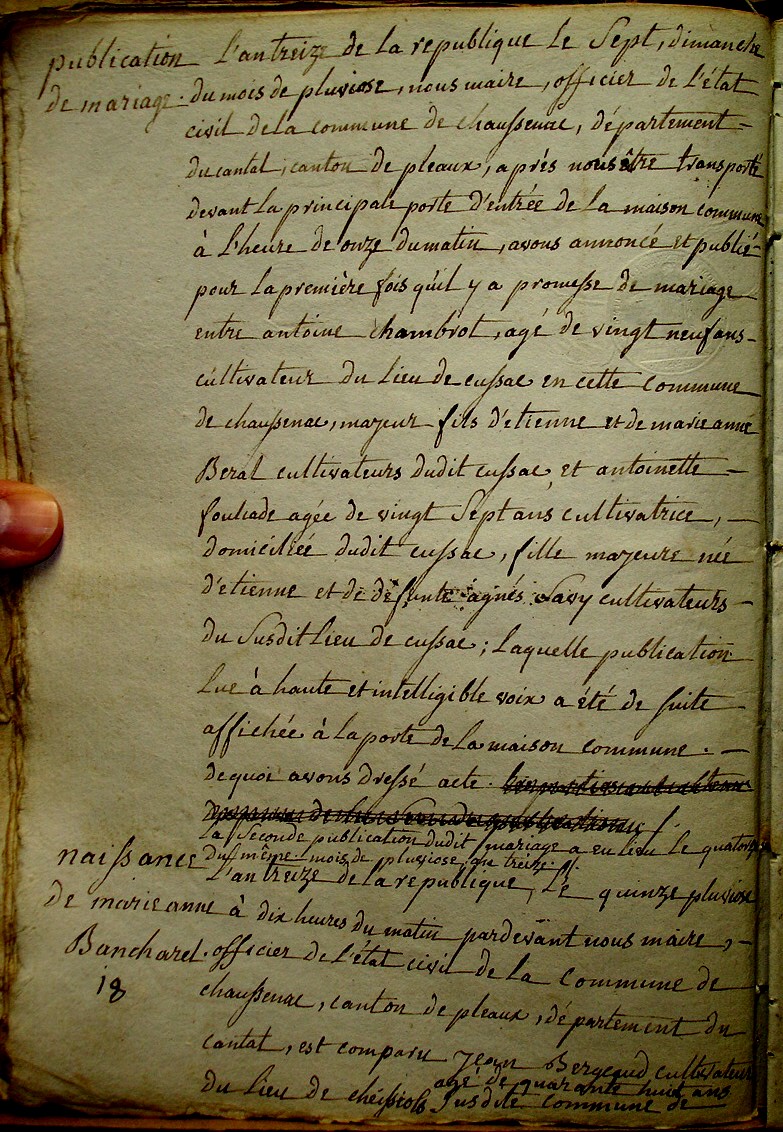 publication L'an treize de la republique le Sept, dimanche
de mariage. du mois de pluviose, nous maire, officier de l'état
civil de la commune de chaussenac, département
du cantal, canton de pleaux, après nous être transporté
devant la principale porte d'entrée de la maison commune
à l'heure de onze du matin, avons annoncé et publié
pour la première fois qu'il y a promesse de mariage
entre antoine chambrot, agé de vingt neuf ans
cultivateur du lieu de cussac en cette commune
de chaussenac, majeur fils d'etienne et de marie anne
Beral cultivateurs dudit cussac, et antoinette
fouliade agée de vingt Sept ans cultivatrice,
domiciliée dudit cussac, fille majeure née
d'etienne et de défunte agnés Savy cultivateurs
du Susdit lieu de cussac; laquelle publication
lue à haute et intelligible voix a été de suite
affichée à la porte de la maison commune.
de quoi avons dressé acte.
la Seconde publication dudit mariage a eu lieu le quatorze
du même mois de pluviose, an treize.
naissance L'an treize de la republique, le quinze pluviose
de marie anne à dix heures du matin pardevant nous maire,
Bancharel. officier de l'état civil de la commune de
18 chaussenac, canton de pleaux, département du
cantal, est comparu jean Bergeaud cultivateur
agé de quarante huit ans
du lieu de susdite commune de